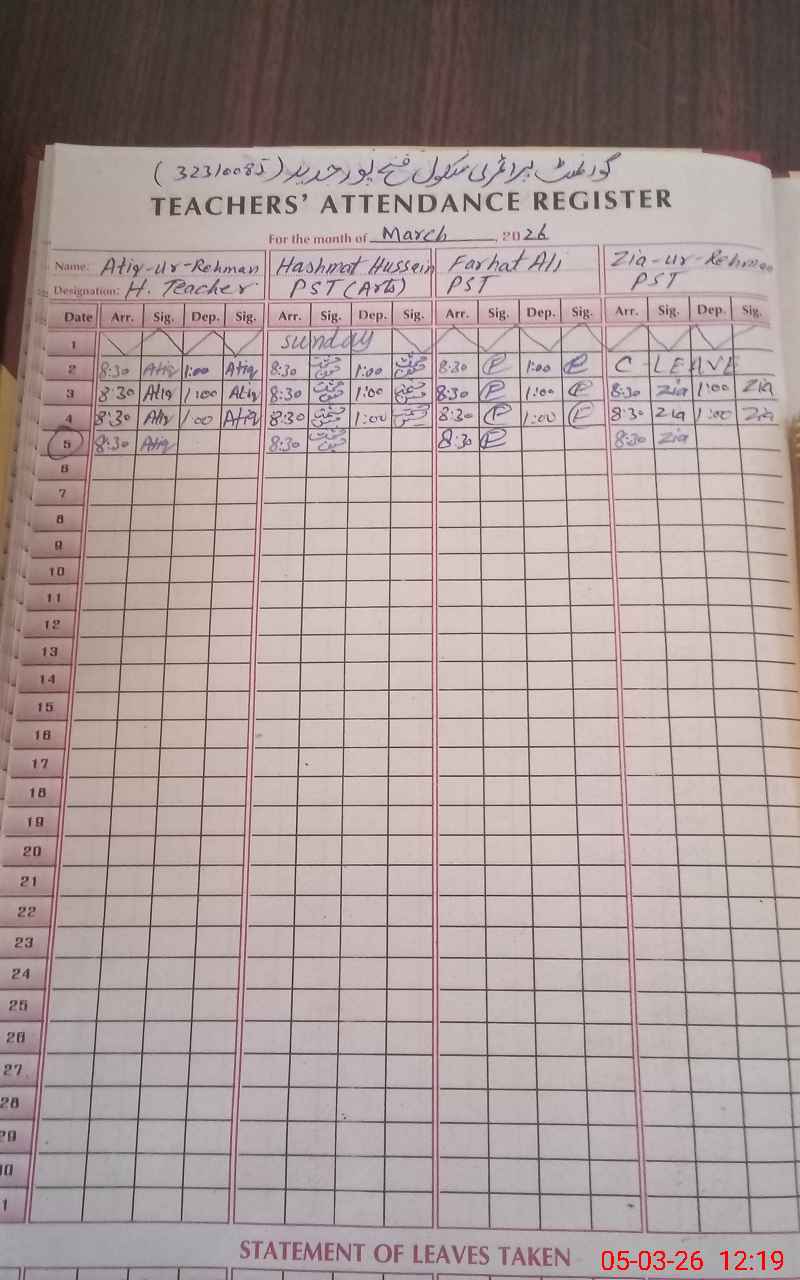 گورنمنٹ پرائمری سکول فتح پور جدید (32310085)
TEACHERS' ATTENDANCE REGISTER
For the month of March, 2026
Name: Atiq-Ur-Rehman Hashmat Hussein Farhat Ali Zia-ur-Rehman
Designation: H. Teacher PST (Arts) PST PST
Date Arr. Sig. Dep. Sig. Arr. Sig. Dep. Sig. Arr. Sig. Dep. Sig. Arr. Sig. Dep. Sig.
1 Sunday
2 8:30 Atiq 1:00 Atiq 8:30 1:00 8:30 1:00 C-LEAVE
3 8:30 Atiq 1:00 Atiq 8:30 1:00 8:30 1:00 8:30 Zia 1:00 Zia
4 8:30 Atiq 1:00 Atiq 8:30 1:00 8:30 1:00 8:30 Zia 1:00 Zia
5 8:30 Atiq 8:30 8:30 8:30 Zia
6
7
8
9
10
11
12
13
14
15
16
17
18
19
20
21
22
23
24
25
26
27
28
29
STATEMENT OF LEAVES TAKEN
05-03-26 12:19